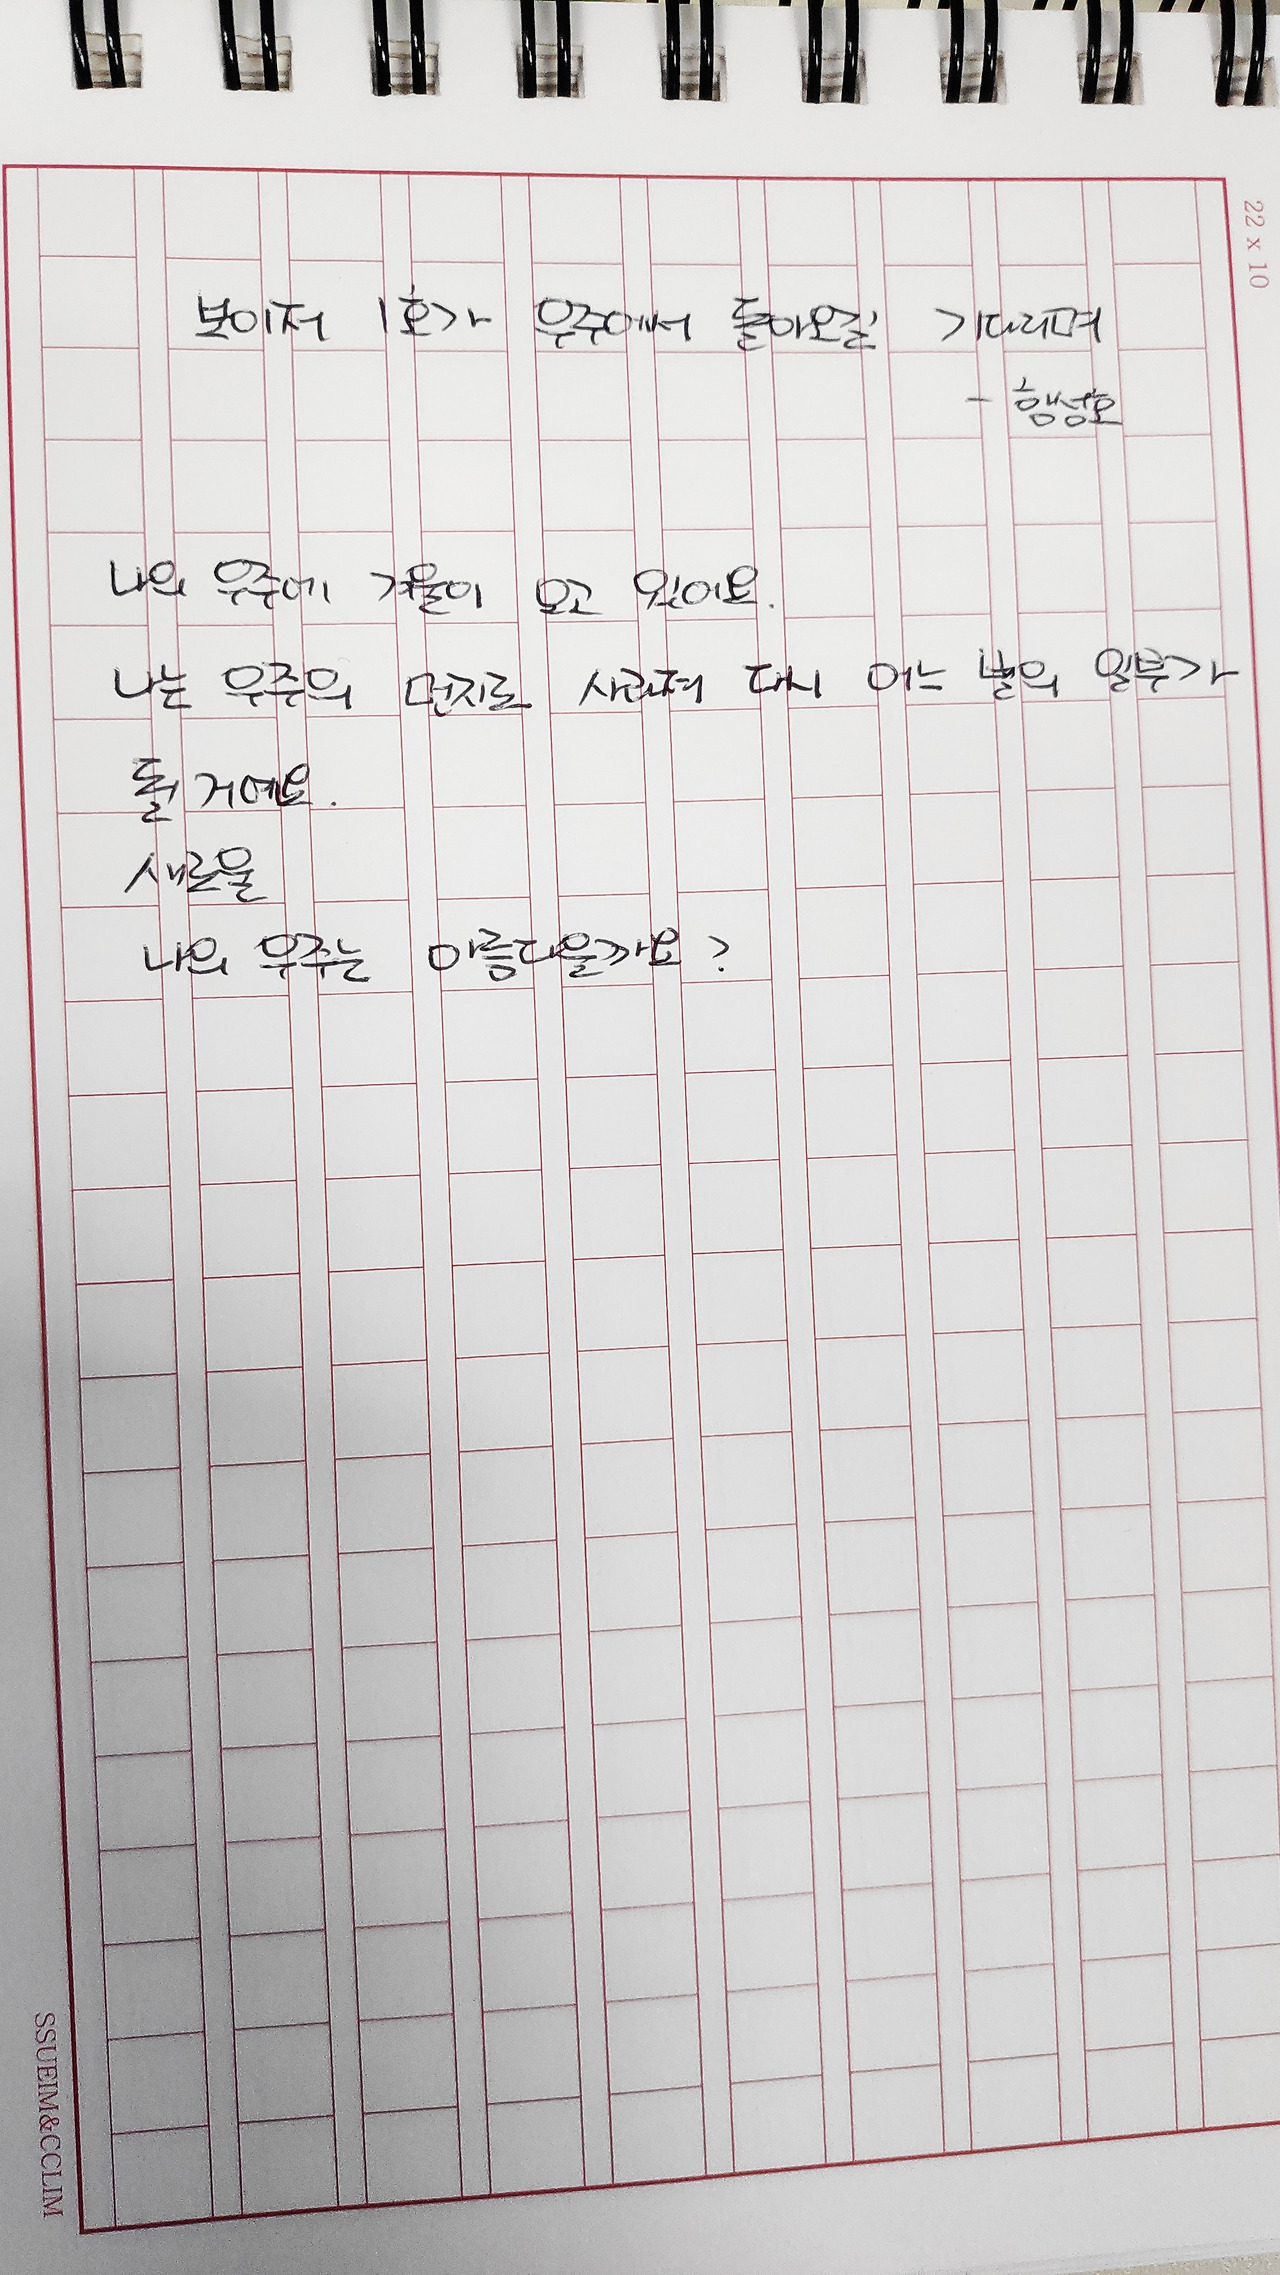 보이저 1호가 우주에서 돌아오길 기다리며
- 행성호
나의 우주에 겨울이 오고 있어요.
나는 우주의 먼지로 사라져 다시 어느 별의 일부가
될 거예요.
새로울
나의 우주는 아름다울까요?
22 x 10
SSUEIM&CCLIM